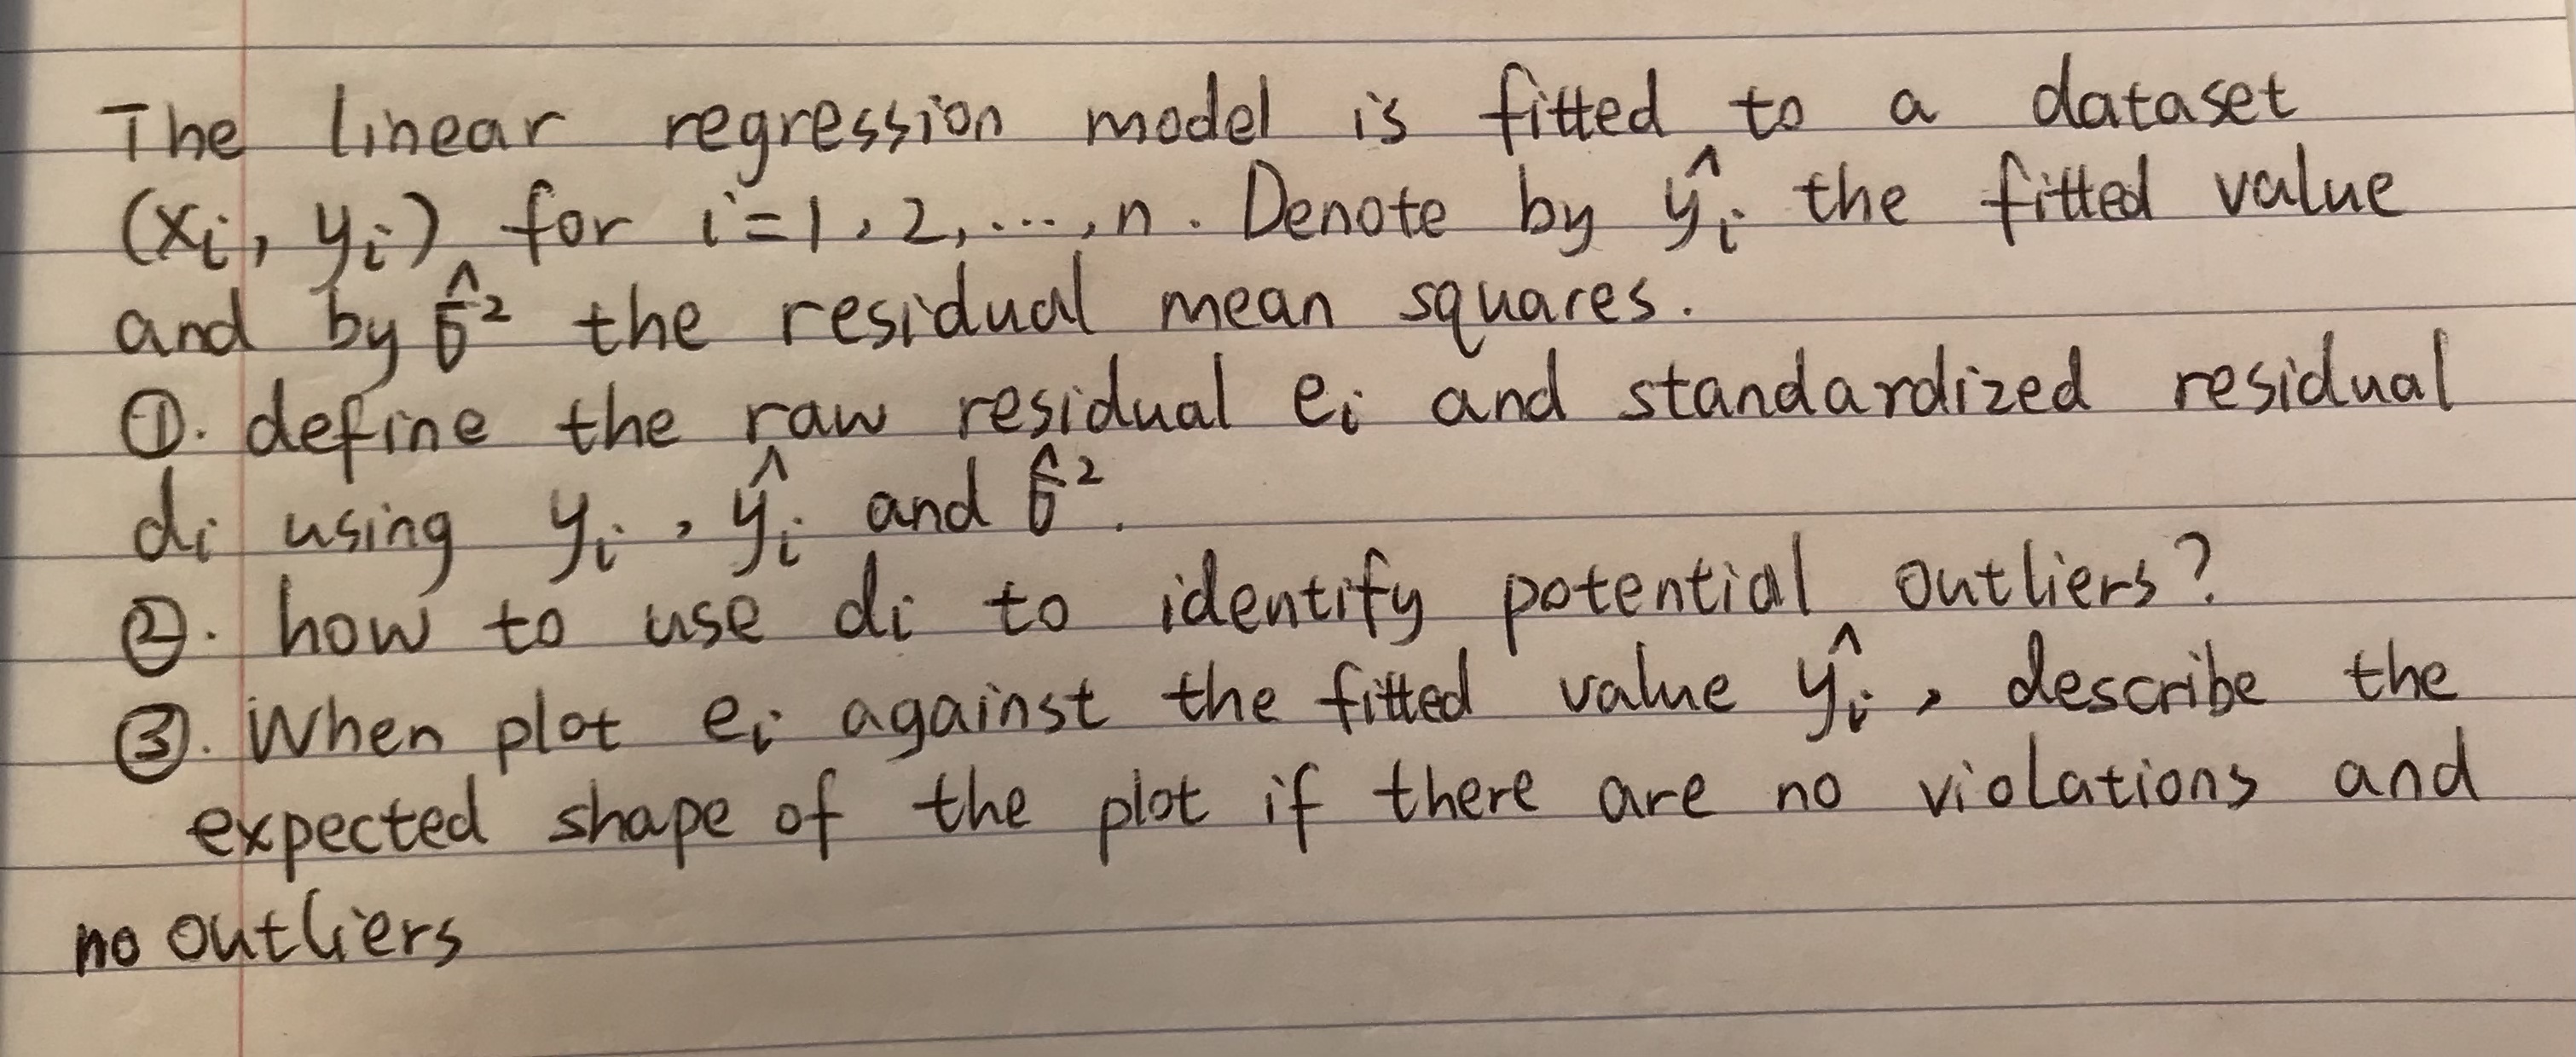 The linear regression model is fitted to a dataset
(xi, yi) for i=1, 2, ..., n. Denote by ŷi the fitted value
and by σ̂² the residual mean squares.
①. define the raw residual ei and standardized residual
di using yi, ŷi and σ̂².
②. how to use di to identify potential outliers?
③. When plot ei against the fitted value ŷi, describe the
expected shape of the plot if there are no violations and
no outliers